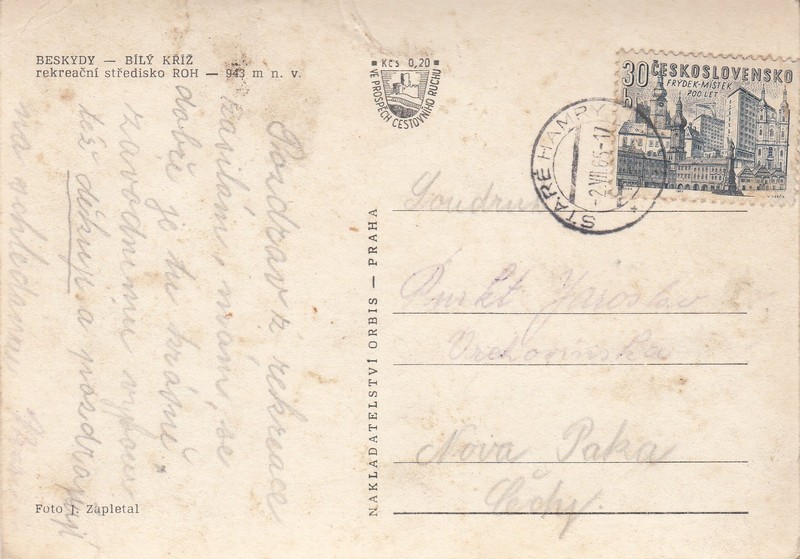 BESKYDY — BÍLÝ KŘÍŽ
rekreační středisko ROH — 943 m n. v.
Kčs 0,20
VE PROSPĚCH CESTOVNÍHO RUCHU
30 h
ČESKOSLOVENSKO
FRÝDEK-MÍSTEK
700 LET
STARÉ HAMRY
-2.VII.65-17
Pozdrav z rekreace
zasílám, mám se
dobře je tu krásně.
závodnímu výboru
též děkuji a pozdravuji
na shledanou
NAKLADATELSTVÍ ORBIS — PRAHA
Soudruh
Purkt Jaroslav
Nova Paka
Čechy.
Foto J. Zapletal